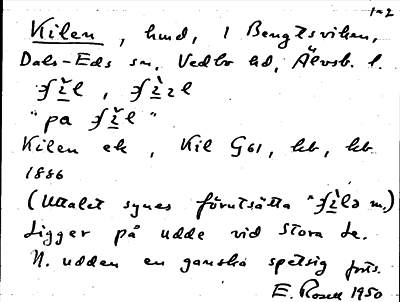 1-2
Kilen, hmd, i Bengtsviken,
Dals-Eds sn, Vedbo hd, Älvsb. l.
"på
Kilen ek, Kil G61, hb, hb
1886
(Uttalet synes förutsätta m.)
Ligger på udde vid Stora Le.
N. udden en ganska spetsig forts.
E. Rosell 1950